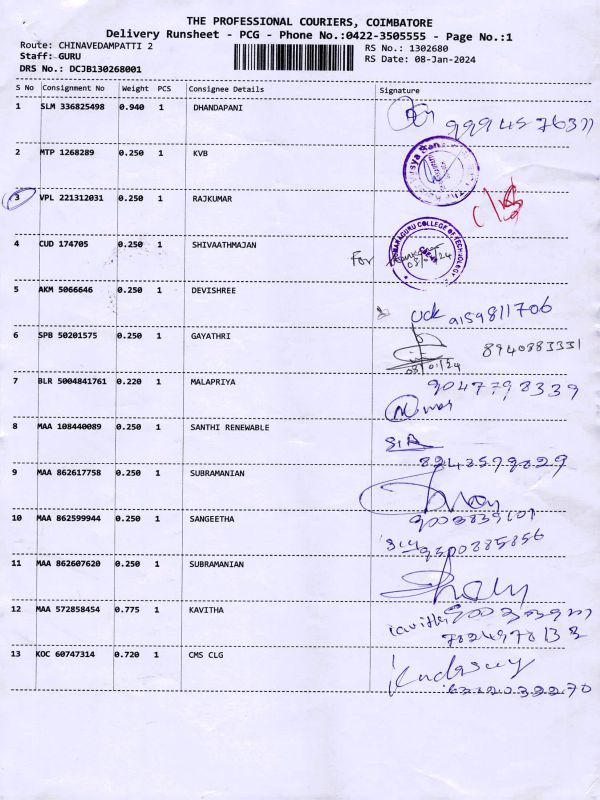 THE PROFESSIONAL COURIERS, COIMBATORE
Delivery Runsheet - PCG - Phone No.:0422-3505555 - Page No.:1
Route: CHINAVEDAMPATTI 2
RS No.: 1302680
Staff: GURU
RS Date: 08-Jan-2024
DRS No.: DCJB130268001
S No Consignment No Weight PCS Consignee Details Signature
1 SLM 336825498 0.940 1 DHANDAPANI
2 MTP 1268289 0.250 1 KVB
3 VPL 221312031 0.250 1 RAJKUMAR
4 CUD 174705 0.250 1 SHIVAATHMAJAN For
COLLEGE OF TECHNOLOGY
5 AKM 5066646 0.250 1 DEVISHREE
9159811706
6 SPB 50201575 0.250 1 GAYATHRI 8940883331
08/01/24
7 BLR 5004841761 0.220 1 MALAPRIYA 9047798339
8 MAA 108440089 0.250 1 SANTHI RENEWABLE
9 MAA 862617758 0.250 1 SUBRAMANIAN
10 MAA 862599944 0.250 1 SANGEETHA
11 MAA 862607620 0.250 1 SUBRAMANIAN
12 MAA 572858454 0.775 1 KAVITHA Kavitha
13 KOC 60747314 0.720 1 CMS CLG